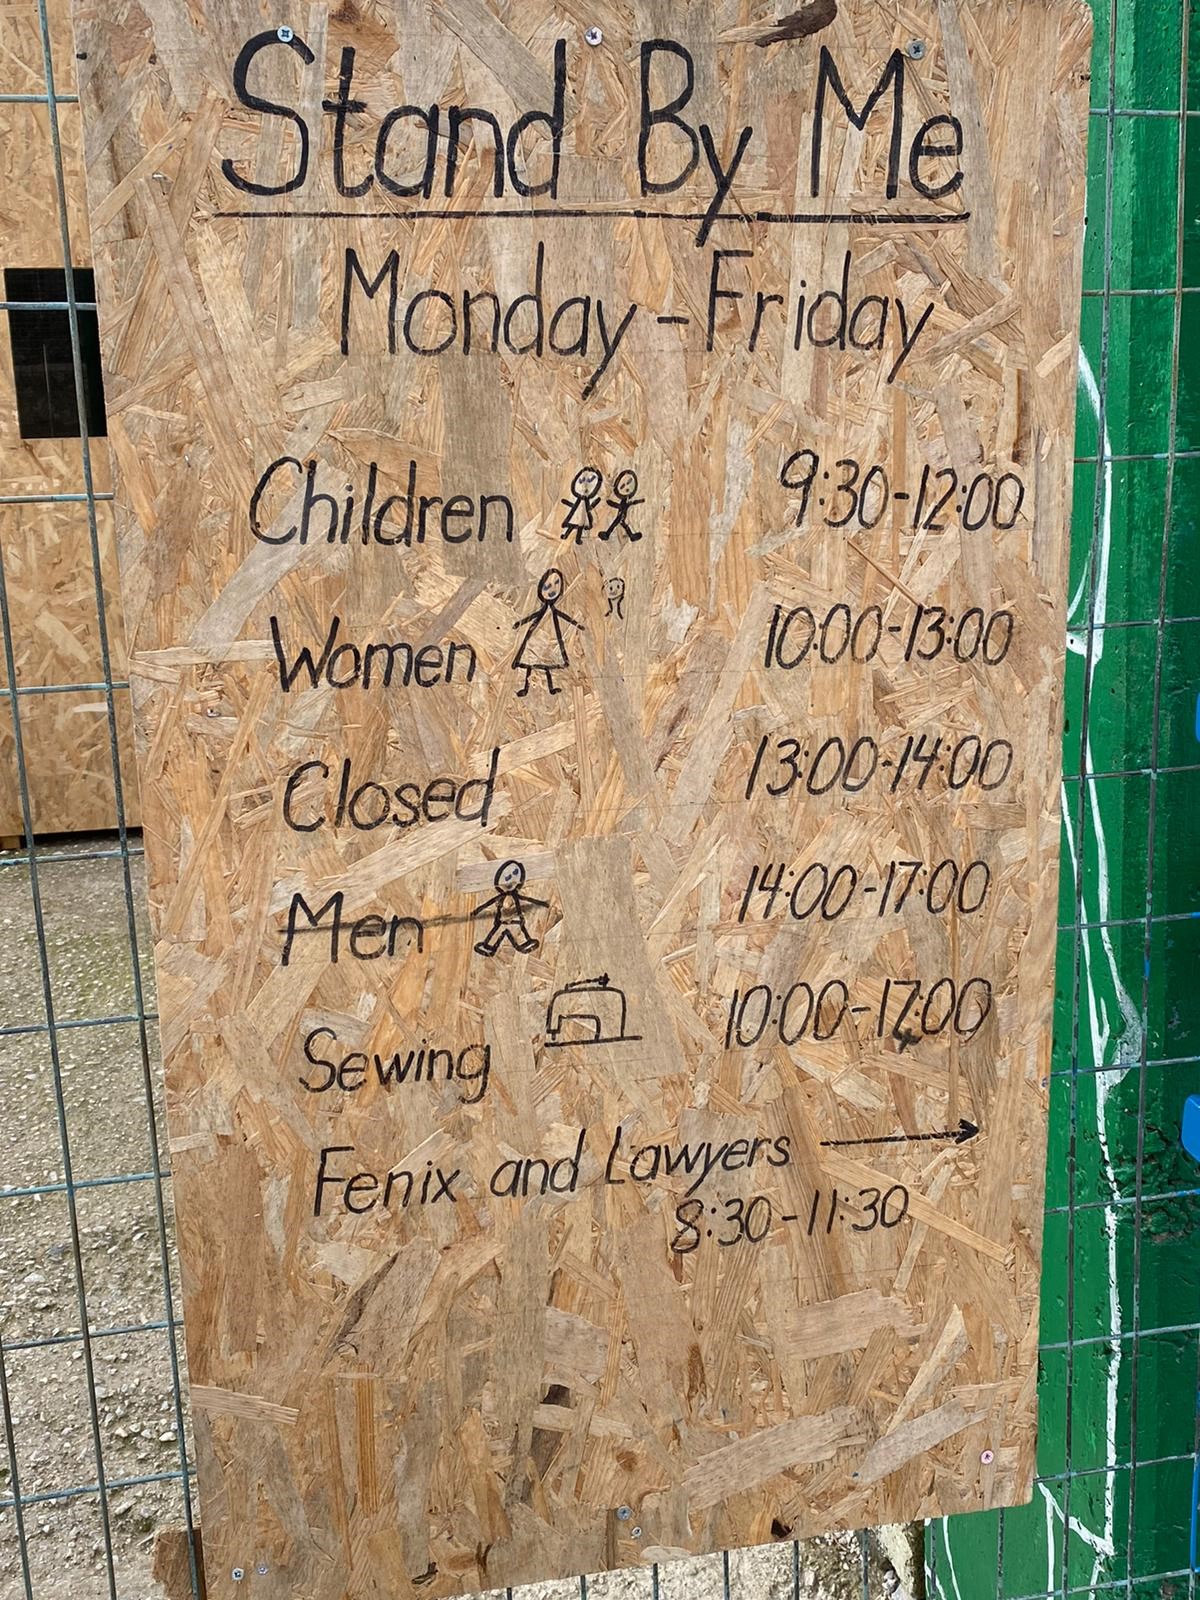 Stand By Me
Monday - Friday
Children 9:30-12:00
Women 10:00-13:00
Closed 13:00-14:00
Men 14:00-17:00
Sewing 10:00-17:00
Fenix and Lawyers →
8:30-11:30